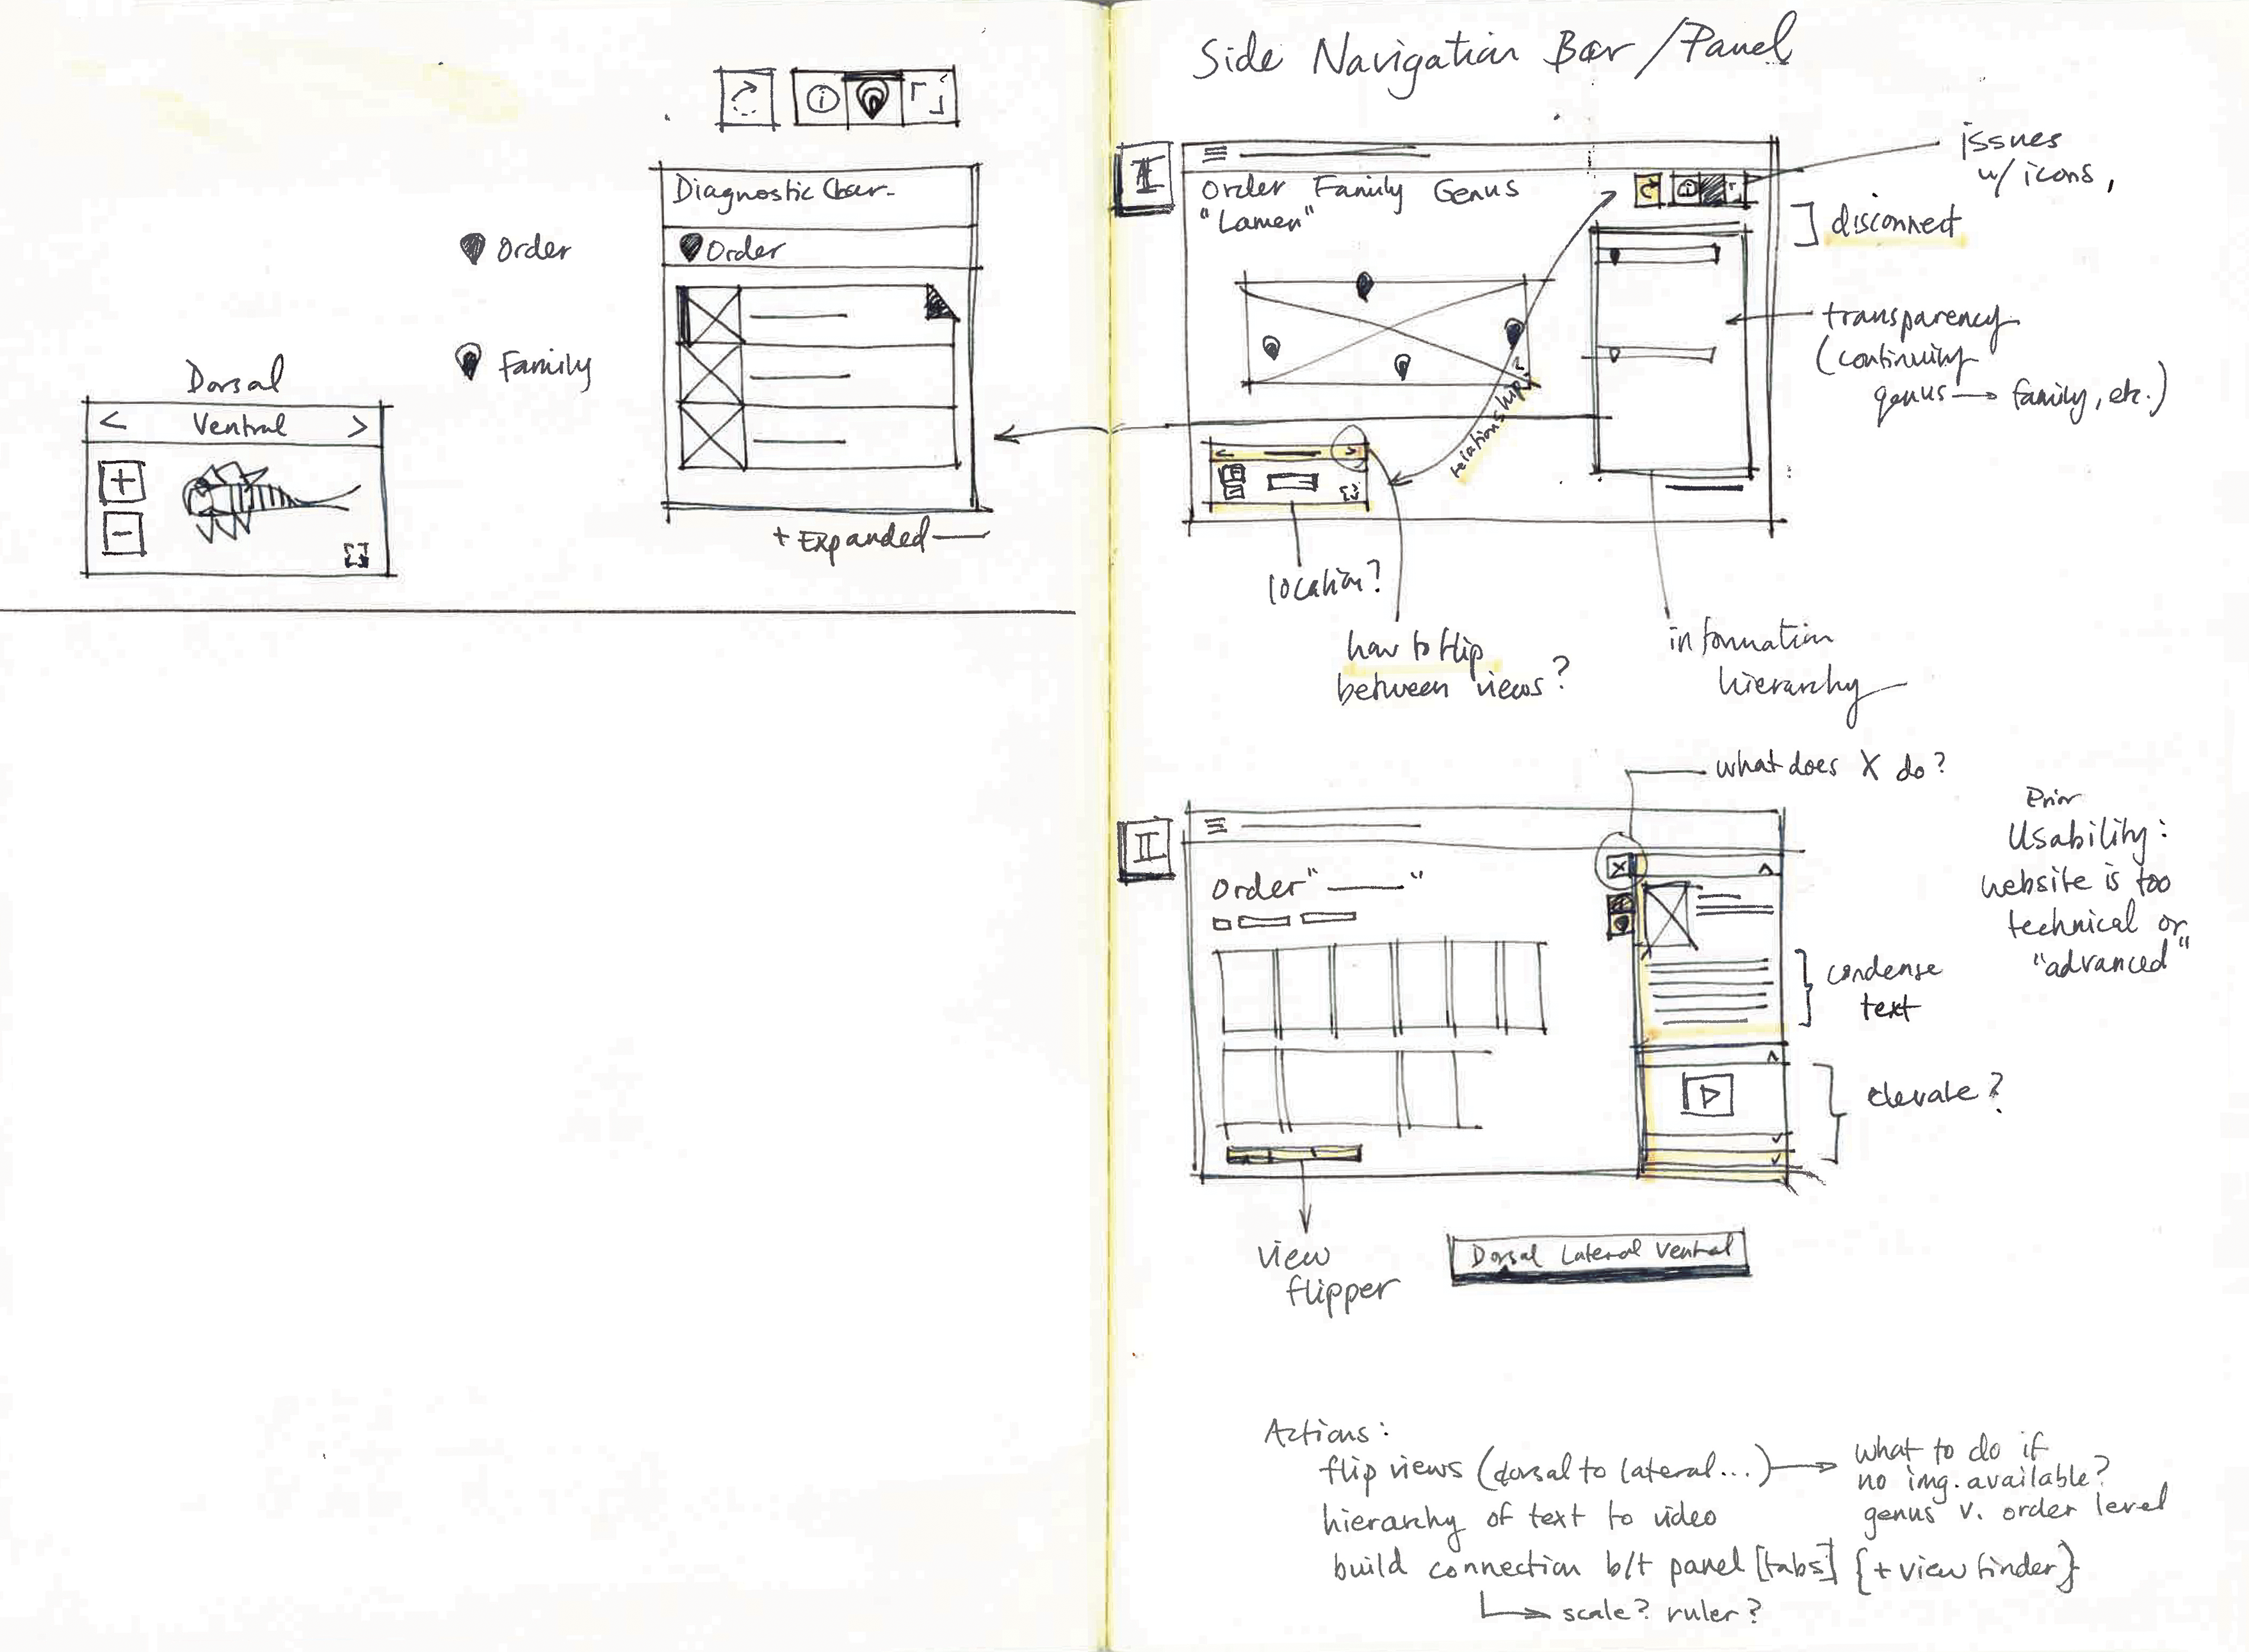 Diagnostic Char-
Order
Order
Family
+ Expanded
Dorsal
< Ventral >
+
-
Side Navigation Bar/Panel
I
Order Family Genus
"Lamer"
issues
w/ icons,
disconnect
transparency
(continuing
genus → family, etc.)
relationship?
location?
how to flip
between views?
information
hierarchy
what does X do?
II
X
Order " "
Prior
Usability:
website is too
technical or
"advanced"
condense
text
elevate?
view
flipper
Dorsal Lateral Ventral
Actions:
flip views (dorsal to lateral...) → what to do if
no img. available?
genus v. order level
hierarchy of text to video
build connection b/t panel [tabs] {+ viewfinder}
→ scale? ruler?